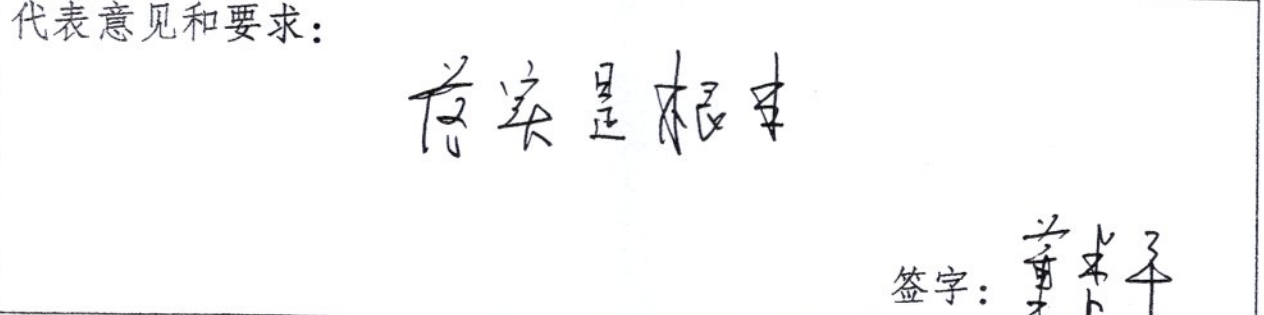 代表意见和要求：
落实是根本
签字：